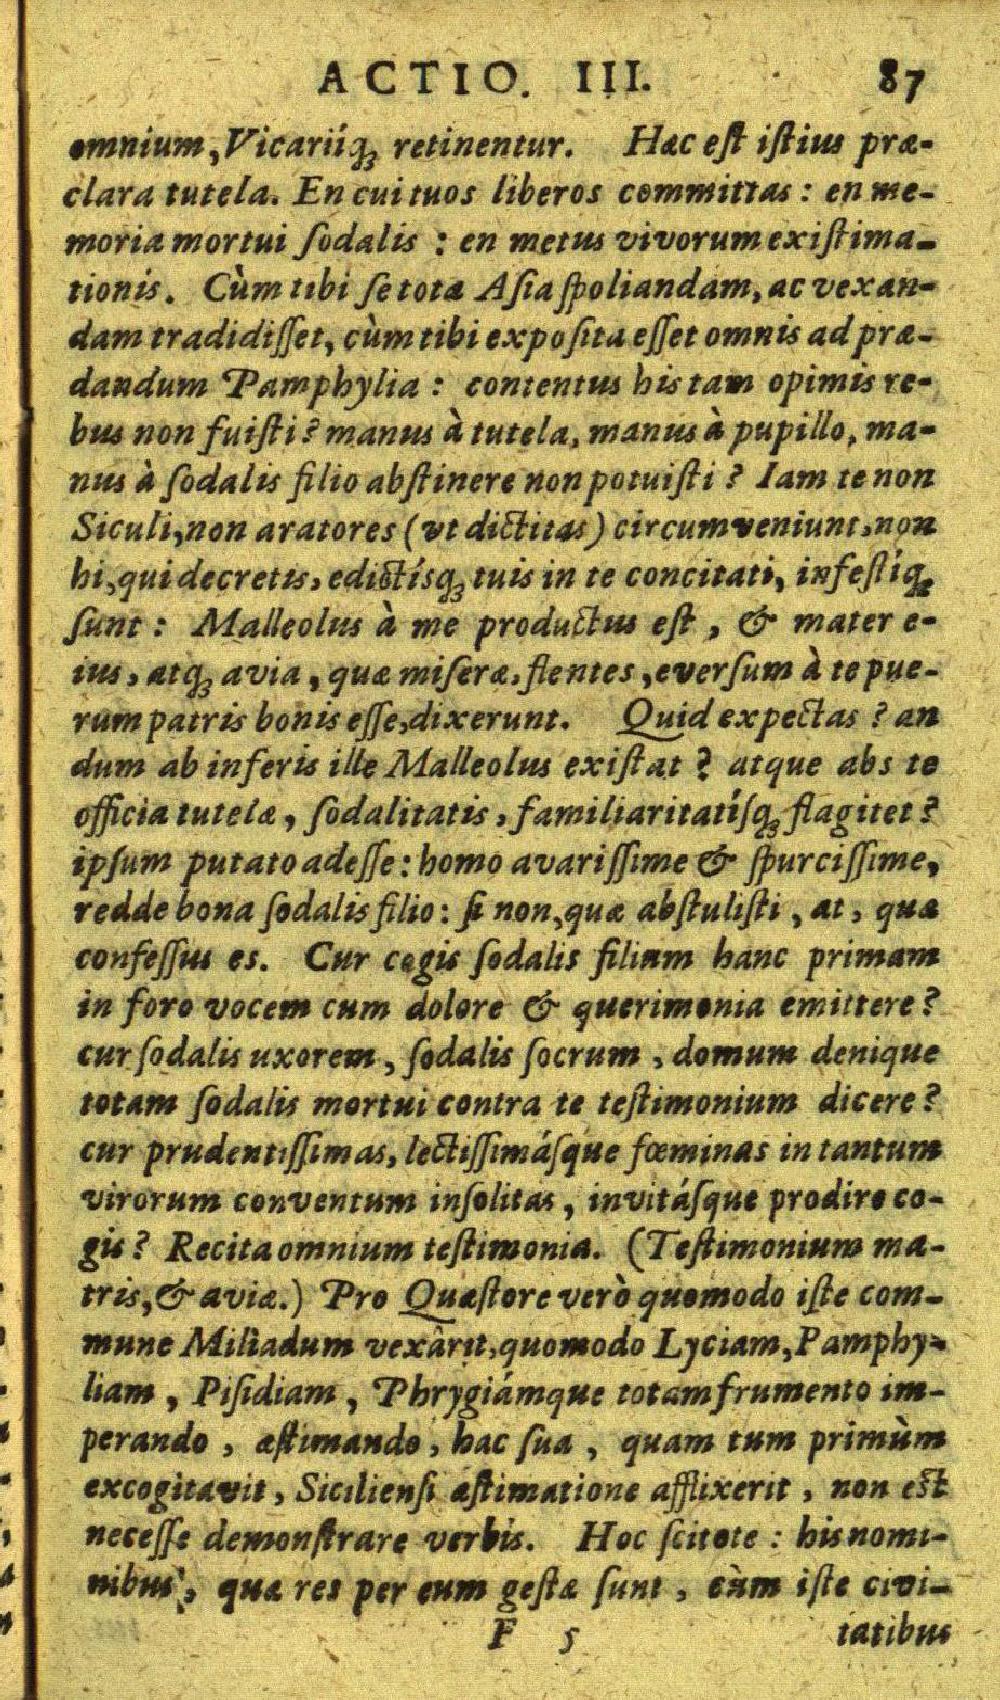 ACTIO. III. 87
omnium, Vicariíq; retinentur. Hæc eſt iſtius præ-
clara tutela. En cui tuos liberos committas : en me-
moria mortui ſodalis : en metus vivorum exiſtima-
tionis. Cùm tibi ſe tota Aſia ſpoliandam, ac vexan-
dam tradidiſſet, cùm tibi expoſita eſſet omnis ad præ-
dandum Pamphylia : contentus his tam opimis re-
bus non fuiſti? manus à tutela, manus à pupillo, ma-
nus à ſodalis filio abſtinere non potuiſti ? Iam te non
Siculi, non aratores (vt dictitas) circumveniunt, non
hi, qui decretis, edictísq; tuis in te concitati, infeſtíq;
ſunt : Malleolus à me productus eſt, & mater e-
ius, atq; avia, quæ miſeræ, flentes, everſum à te pue-
rum patris bonis eſſe, dixerunt. Quid expectas ? an
dum ab inferis ille Malleolus exiſtat ? atque abs te
officia tutelæ, ſodalitatis, familiaritatíſq; flagitet ?
ipſum putato adeſſe : homo avariſſime & ſpurciſſime,
redde bona ſodalis filio : ſi non, quæ abſtuliſti, at, quæ
confeſſus es. Cur cogis ſodalis filium hanc primam
in foro vocem cum dolore & querimonia emittere?
cur ſodalis uxorem, ſodalis ſocrum, domum denique
totam ſodalis mortui contra te teſtimonium dicere?
cur prudentiſſimas, lectiſſimáſque fœminas in tantum
virorum conventum inſolitas, invitáſque prodire co-
gis? Recita omnium teſtimonia. (Teſtimonium ma-
tris, & aviæ.) Pro Quæſtore verò quomodo iſte com-
mune Miliadum vexârit, quomodo Lyciam, Pamphy-
liam, Piſidiam, Phrygiámque totam frumento im-
perando, æſtimando, hac ſua, quam tum primùm
excogitavit, Sicilienſi æſtimatione afflixerit, non eſt
neceſſe demonſtrare verbis. Hoc ſcitote : his nomi-
nibus, quæ res per eum geſtæ ſunt, cùm iſte civi-
F 5 tatibus